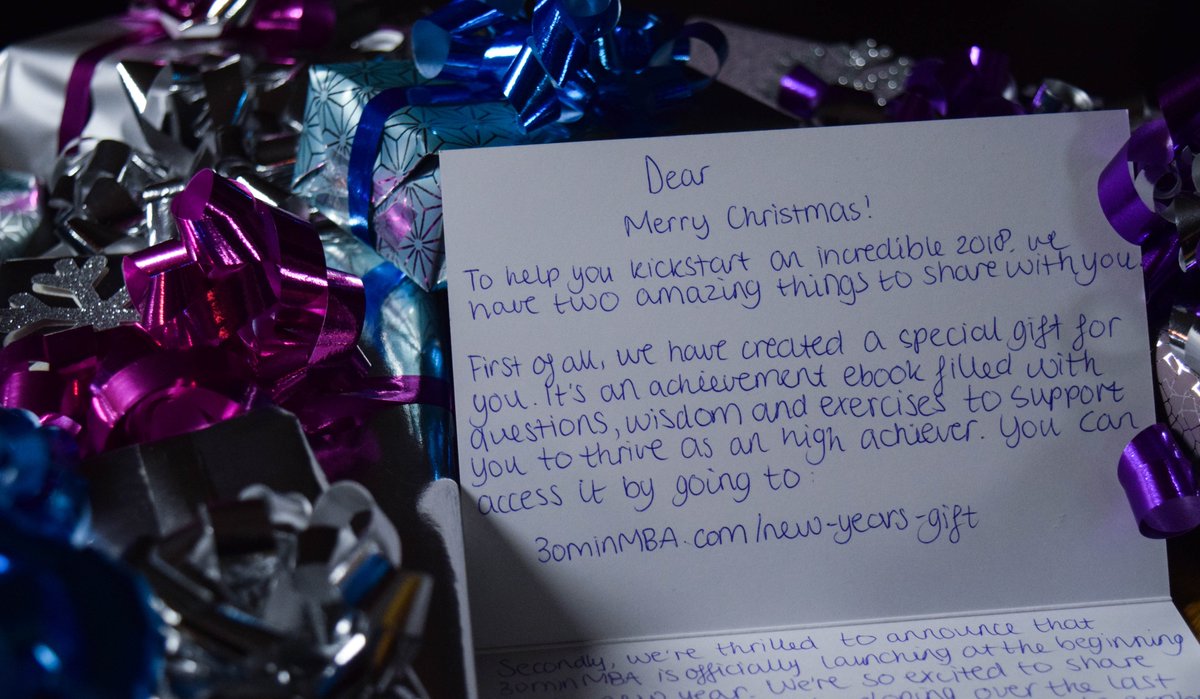 Dear
Merry Christmas!
To help you kickstart an incredible 2018. we
have two amazing things to share with you
First of all, we have created a special gift for
you. It's an achievement ebook filled with
questions, wisdom and exercises to support
you to thrive as an high achiever. You can
access it by going to:
30minMBA.com/new-years-gift
Secondly, we're thrilled to announce that
30minMBA is officially launching at the beginning
new year. We're so excited to share
over the last